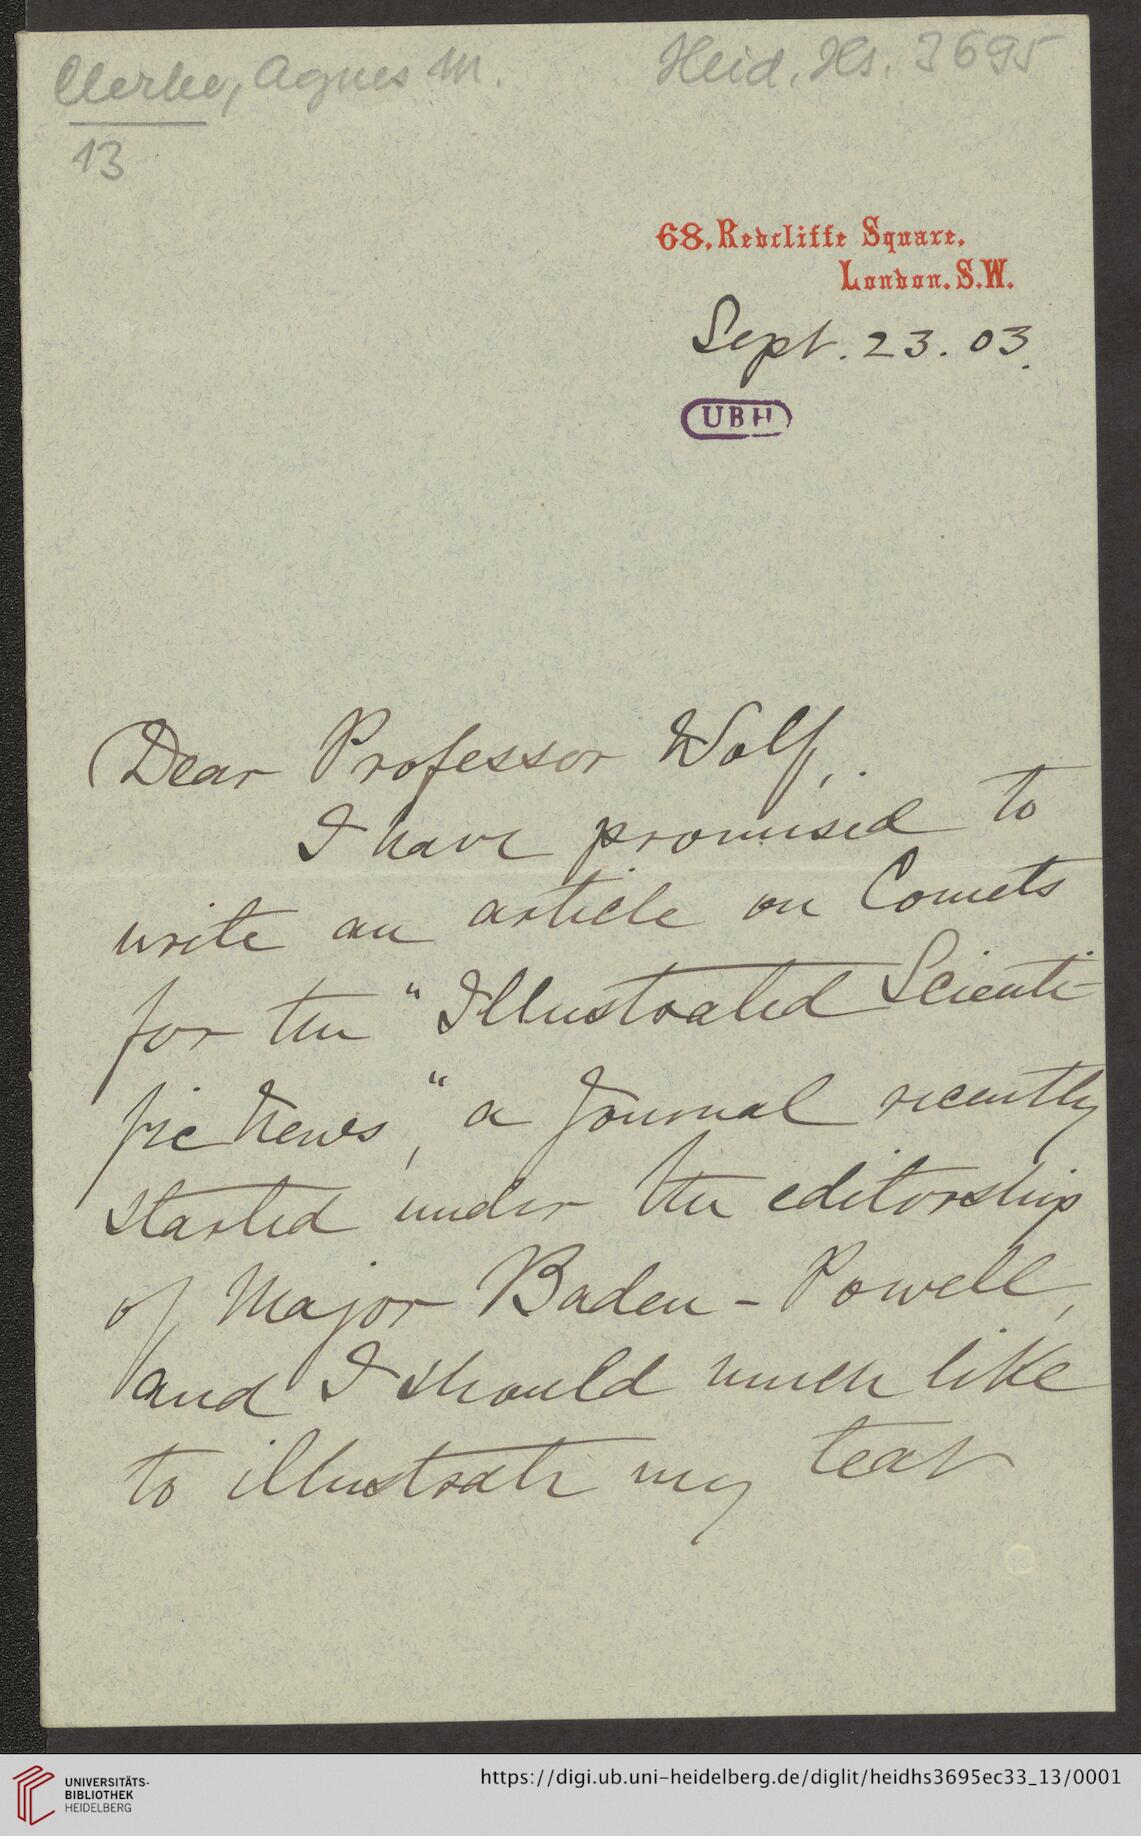 Clerke, Agnes M.
Heid. Hs. 3695
13
68, Redcliffe Square,
London. S.W.
Sept. 23. 03.
UBH
Dear Professor Wolf,
I have promised to
write an article on Comets
for the "Illustrated Scienti-
fic News", a Journal recently
started under the editorship
of Major Baden-Powell,
and I should much like
to illustrate my text
UNIVERSITÄTS-
BIBLIOTHEK
HEIDELBERG
https://digi.ub.uni-heidelberg.de/diglit/heidhs3695ec33_13/0001